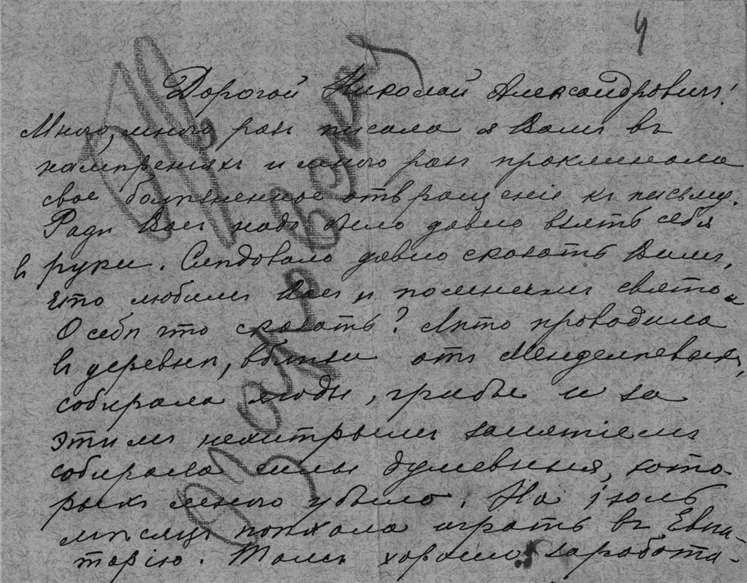 4
Дорогой Николай Александрович!
Много, много разъ писала я Вамъ въ
намѣренiяхъ и много разъ проклинала
свое болѣзненное отвращенiе къ письму.
Ради Васъ надо было давно взять себя
въ руки. Слѣдовало давно сказать Вамъ,
что любимъ Васъ и помнимъ свято.
О себѣ что сказать? Лѣто проводила
въ деревнѣ, вблизи отъ Менделѣевыхъ,
собирала ягоды, грибы и за
этимъ нехитрымъ занятiемъ
собирала силы душевныя, кото-
рыхъ много убыло. На iюль
мѣсяцъ поѣхала играть въ Евпа-
торiю. Тамъ хорошо заработа-